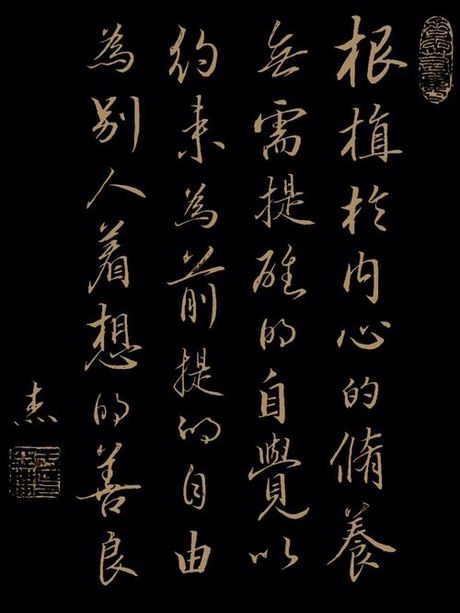 根植於内心的脩養
無需提醒的自覺以
約束為前提的自由
為別人着想的善良